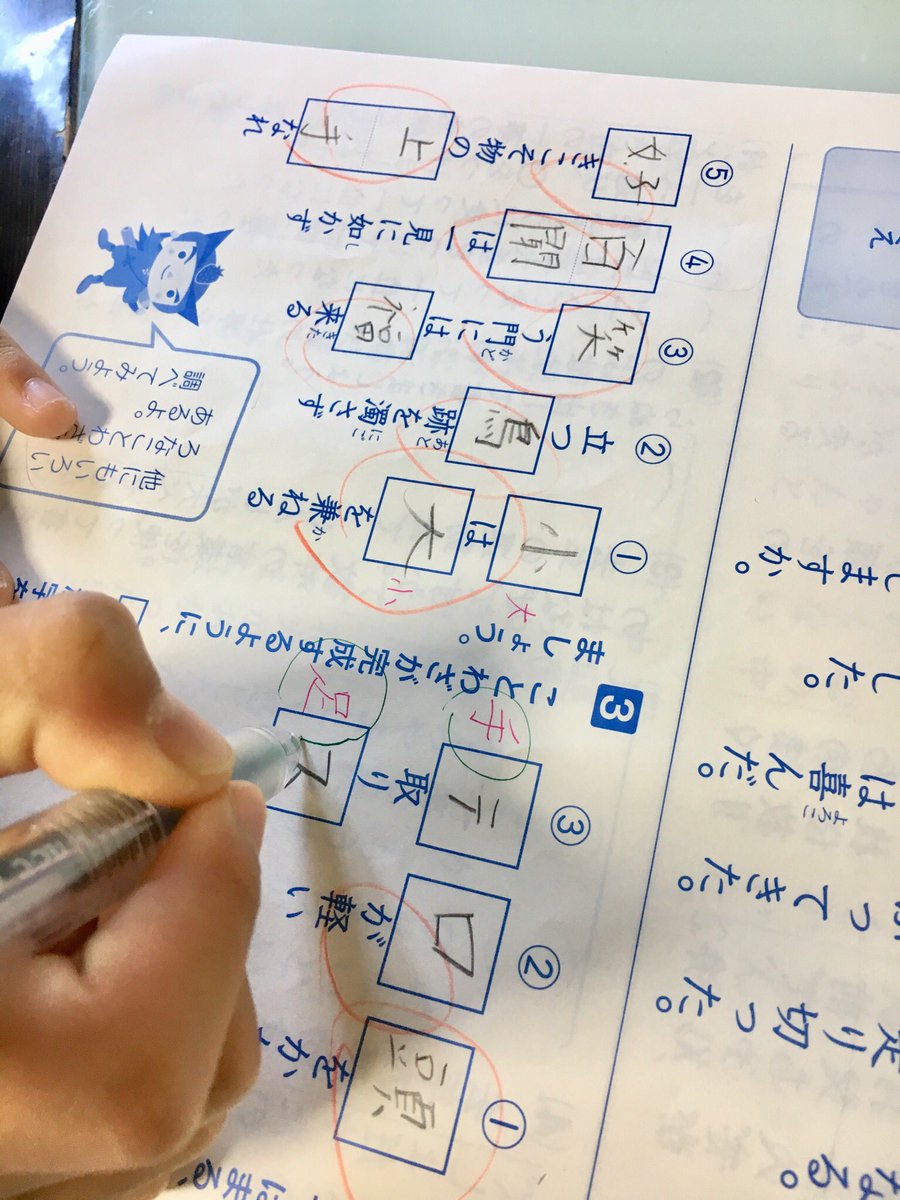 なる。
走り切った。
ってきた。
は喜んだ。
よろこ
した。
しますか。
え
はまる、
① 頭をか
② 口が軽い
③ テ取り
手
足
3 ことわざが完成するように、
ましょう。
① 小は大を兼ねる
か
大
小
② 立つ鳥跡を濁さず
あと
にご
③ 笑う門には福来る
かど
きた
④ 百聞は一見に如かず
し
⑤ 好きこそ物の上手なれ
他にもいろい
ろなことわ
あるよ。
調べてみよう。